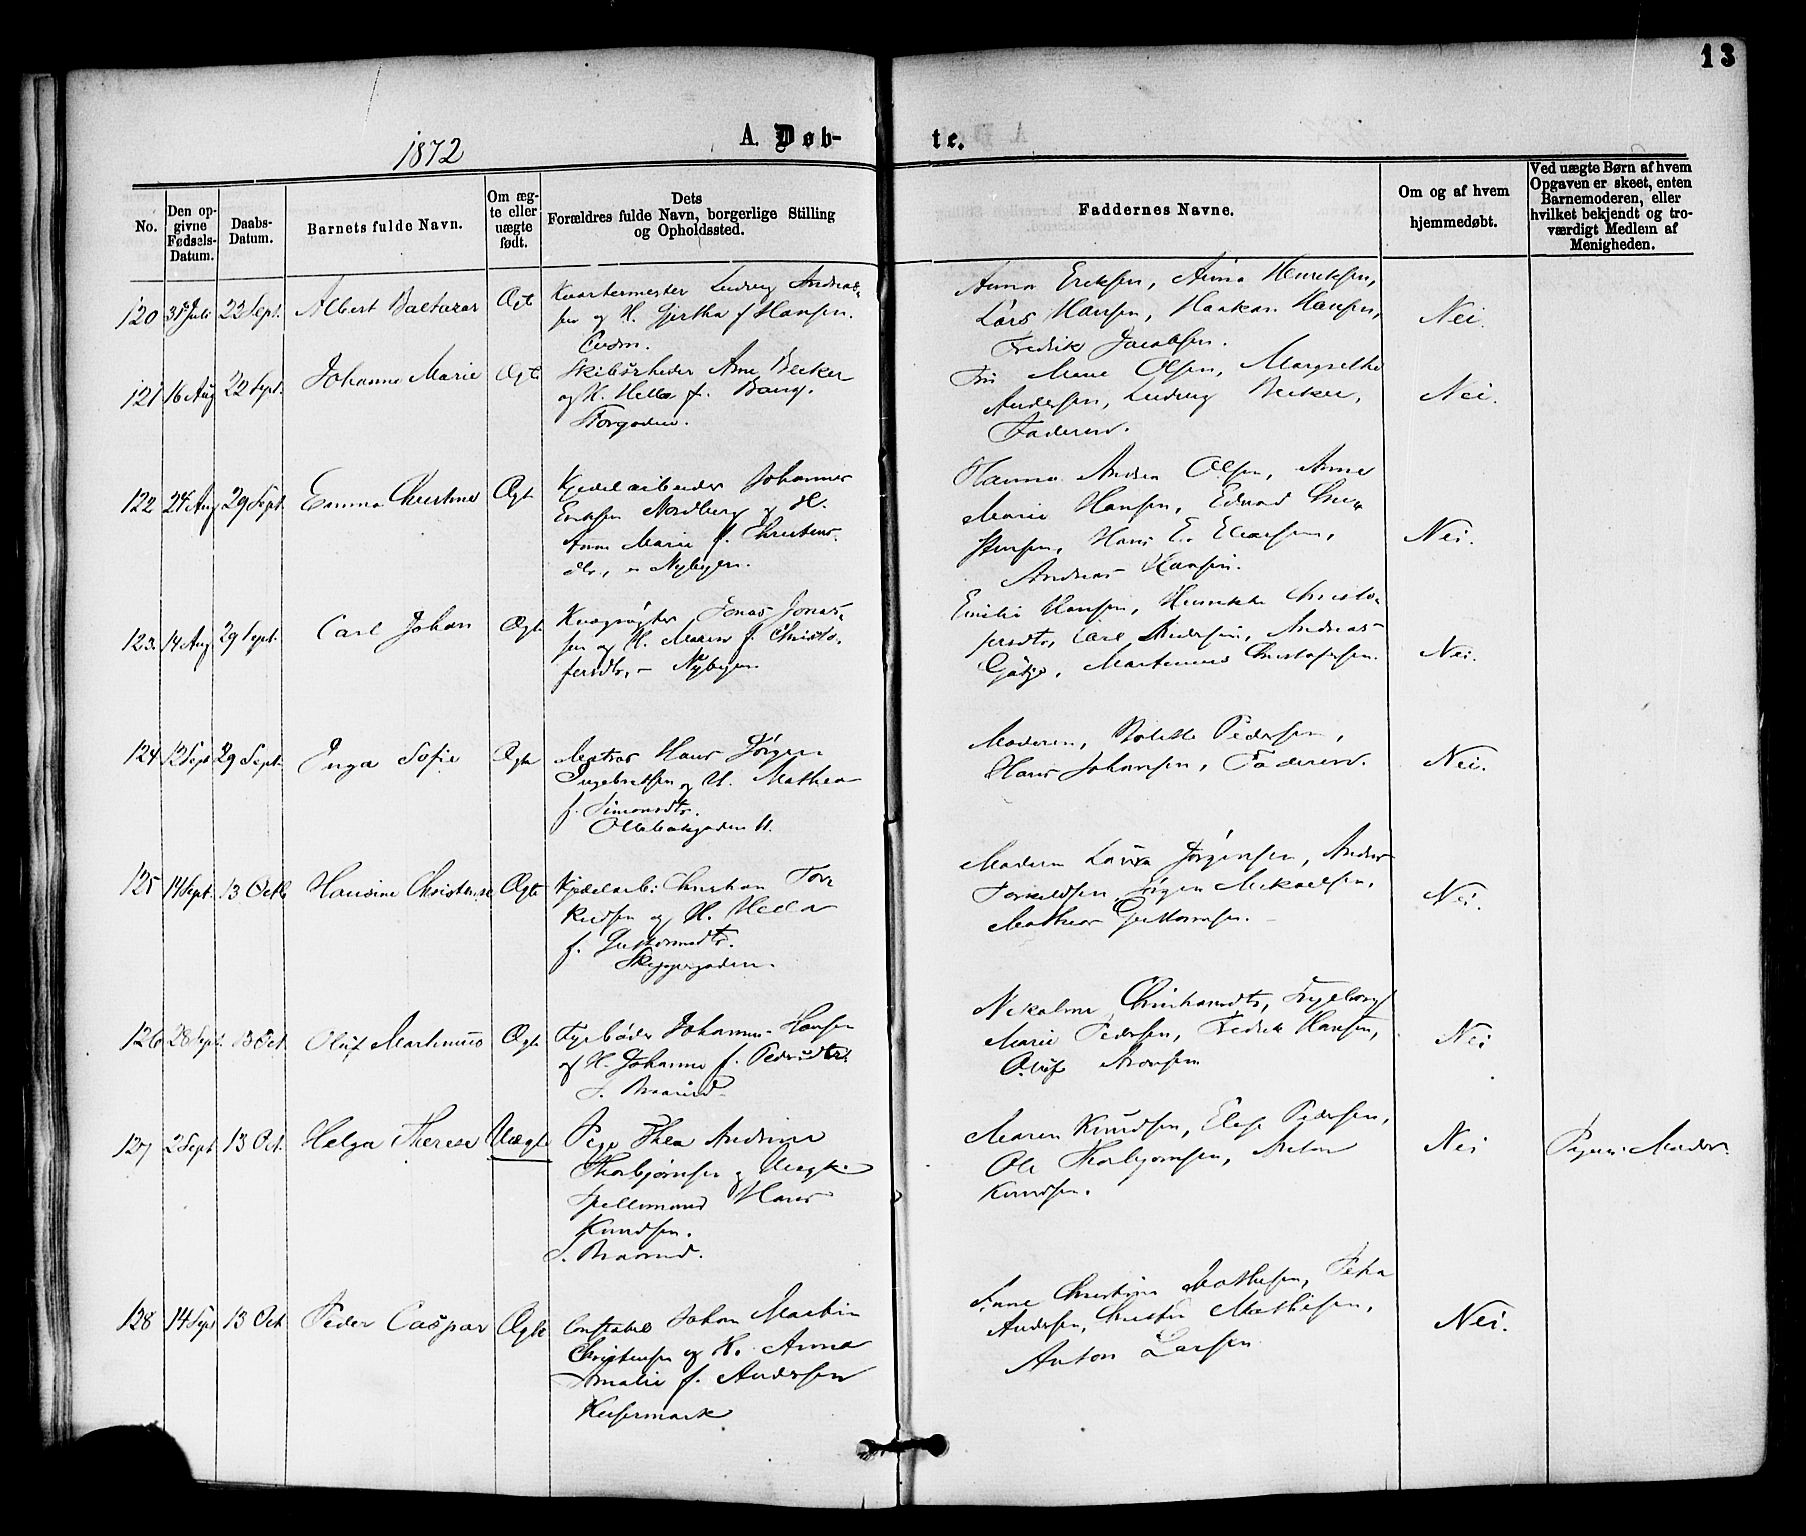 13
1872
A. Døb-
te.
No.
Den op-
givne
Fødsels-
Datum.
Daabs-
Datum.
Barnets fulde Navn.
Om æg-
te eller
uægte
født.
Dets
Forældres fulde Navn, borgerlige Stilling
og Opholdssted.
Faddernes Navne.
Om og af hvem
hjemmedøbt.
Ved uægte Børn af hvem
Opgaven er skeet, enten
Barnemoderen, eller
hvilket bekjendt og tro-
værdigt Medlem af
Menigheden.
120 31 Juli 22 Sept. Albert Baltazar Ægte
Kvartermester Ludvig Andreas-
sen og H. Gjertha f Hansen.
Anna Eriksen, Anna Henriksen,
Lars Hansen, Haakon Hansen,
Fredrik Jacobsen.
Nei.
121 16 Aug 22 Sept. Johanne Marie Ægte
Arne Becker
og H. Hella f. Bang.
Storgaden.
Fru Marie Olsen, Margrethe
Andersen, Ludvig Becker,
Faderen.
Nei.
122 24 Aug 29 Sept. Emma Christine Ægte
Kjedelarbeider Johannes
Eriksen Nordberg og H.
Anne Marie f. Christens-
dtr., Nybyen.
Hanna Andrea Olsen, Anne
Marie Hansen, Edvard Chri-
stensen, Hans E. Eliassen,
Andreas Hansen.
Nei.
123. 14 Aug 29 Sept. Carl Johan Ægte
Jonas Jonas-
sen og H. Maren f. Christo-
fersdtr, - Nybyen.
Emilie Hansen, Henrikke Christo-
fersdtr, Carl Andersen, Andreas
Martinius Christofersen.
Nei.
124 12 Sept 29 Sept. Inga Sofie Ægte
Matros Hans Jørgen
Ingebretsen og H. Mathea
f. Simonsdtr.
Ollebakgaden 11.
Moderen, Pedersen,
Hans Johansen, Faderen.
Nei.
125 14 Sept. 13 Octb Hansine Christense Ægte
Kjedelarb: Christian Tor-
kildsen og H. Hella
f. Guttormsdtr.
Skippergaden.
Moderen Laura Jørgensen, Anders
Torkildsen, Jørgen Mikaelsen,
Mathias Guttormsen.
Nei.
126 28 Sept. 13 Oct. Oluf Martinius Ægte
Fyrbøder Johannes Hansen
og H. Johanne f. Pedersdtr.
S. Braarud.
Nikoline Christiansdtr, Ingeborg
Marie Pedersen, Fredrik Hansen,
Oluf Aronsen
Nei
127 2 Sept 13 Oct. Helga Therese Uægte
Pige Thea Andrine
Thorbjørnsen og Ungk.
Spillemand Hans
Knudsen.
S. Braarud.
Maren Knudsen, Elise Pedersen,
Ole Thorbjørnsen, Anton
Knudsen.
Nei
Pigens Moder.
128 14 Sept 13 Oct. Peder Caspar Ægte
Constabel Johan Martin
Christensen og H. Anna
Amalie f. Andersen
Keisermark
Anne Christine Mathisen, Petra
Andersen, Mathisen,
Anton Larsen
Nei.